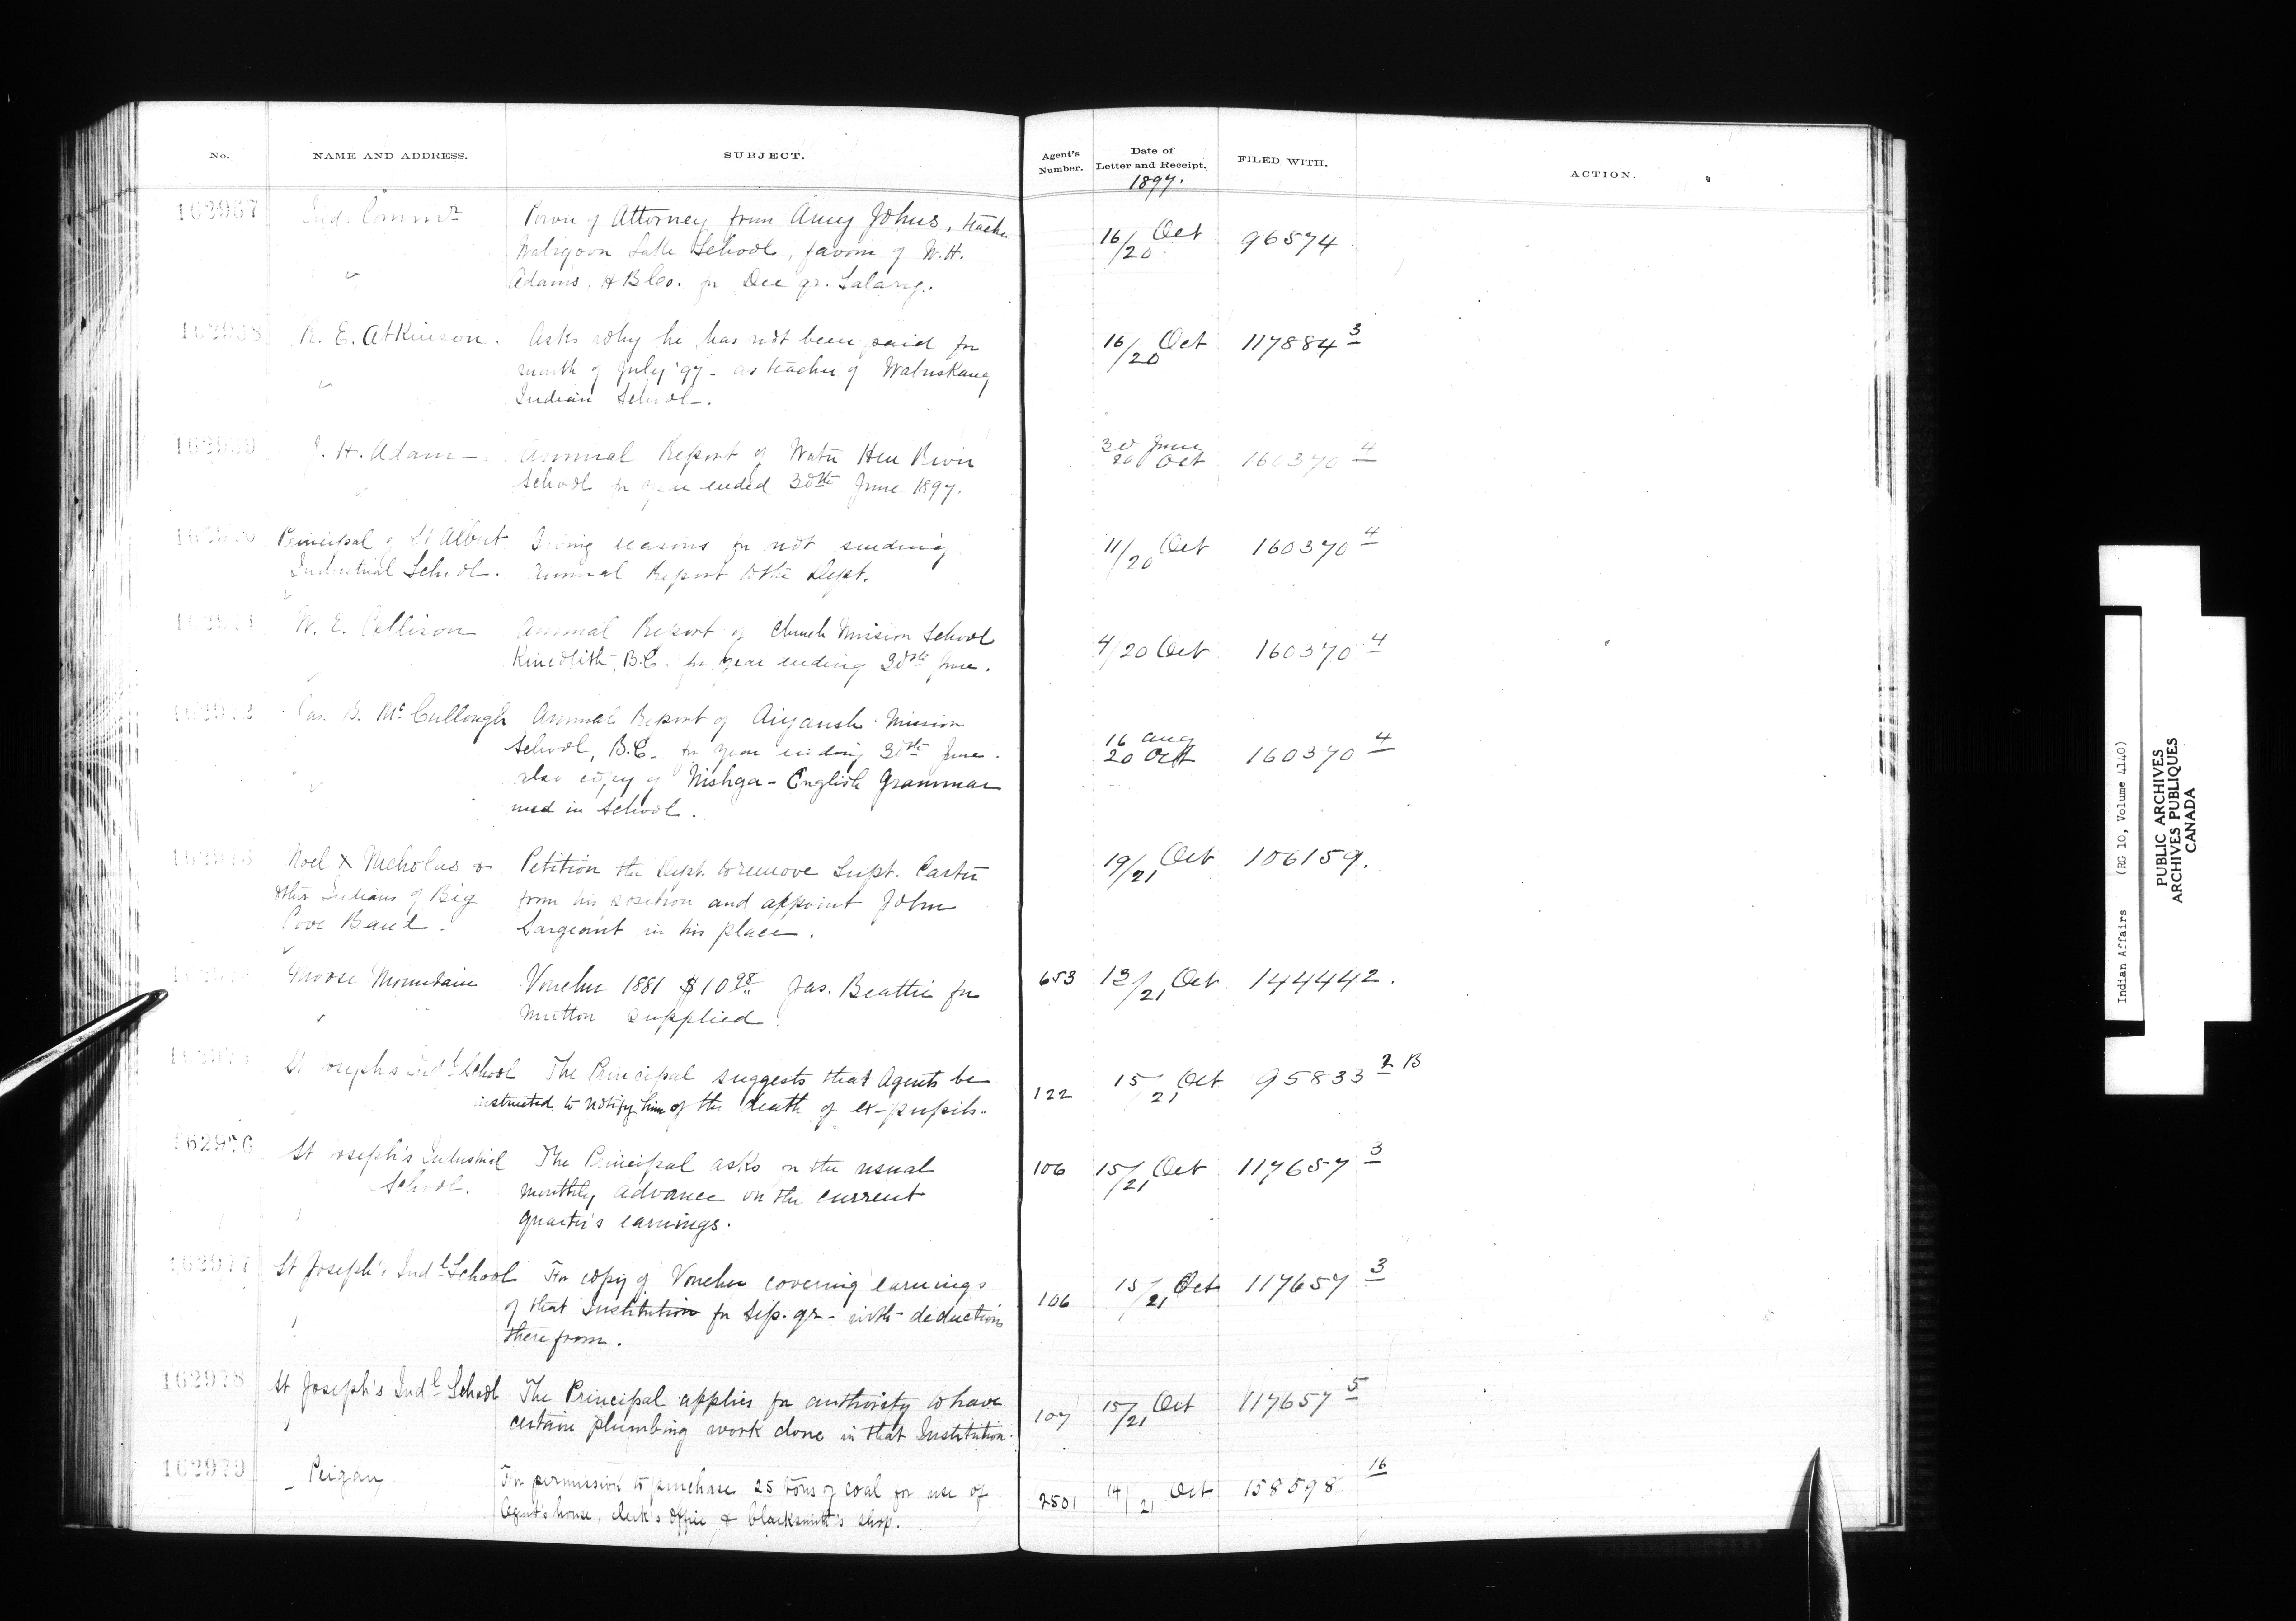 No.
NAME AND ADDRESS.
SUBJECT.
Agent's Number.
Date of Letter and Receipt.
1897.
FILED WITH.
ACTION.
162967 Ind. Commr Power of Attorney from Amy Johns, teacher
Wabigoon Lake School, favour of W. H.
Adams, H B Co. for Dec qr. Salary.
16/20 Oct 96574
162968 R. E. Atkinson. Asks why he has not been paid for
month of July '97 - as teacher of Wabuskang
Indian School -.
16/20 Oct 117884 3
162969 J. H. Adam Annual Report of Water Hen River
School for year ended 30th June 1897.
30 June
20 Oct 160370 4
162970 Principal of St Albert Giving reasons for not sending
Industrial School. Annual Report to the Dept.
11/20 Oct 160370 4
162971 W. E. Collison Annual Report of Church Mission School
Kincolith, B.C. for year ending 30th June.
4/20 Oct 160370 4
162972 Jas. B. McCullough Annual Report of Aiyansh Mission
School, B.C. for year ending 30th June.
also copy of Nishga - English Grammar
used in School.
16 Aug
20 Oct 160370 4
162973 Noel X Nicholas & Petition the Dept. to remove Supt. Carter
other Indians of Big from his position and appoint John
Cove Band. Sargeant in his place.
19/21 Oct 106159.
Moose Mountain Voucher 1881 $10 98 Jas. Beattie for
Mutton supplied.
653 13/21 Oct 144442.
162975 St Josephs Indl School The Principal suggests that Agents be
instructed to notify him of the death of ex-pupils.
122 15/21 Oct 95833 2 B
162976 St Joseph's Industrial The Principal asks for the usual
School. monthly advance on the current
quarter's earnings.
106 15/21 Oct 117657 3
162977 St Joseph's Indl School For copy of Voucher covering earnings
of that Institution for Sep. qr - with deductions
there from.
106 15/21 Oct 117657 3
162978 St Joseph's Indl School The Principal applies for authority to have
certain plumbing work done in that Institution.
107 15/21 Oct 117657 5
162979 Peigan For permission to purchase 25 tons of coal for use of
Agent's house, clerk's office & blacksmith's shop.
2501 14/21 Oct 158598 16
Indian Affairs (RG 10, Volume 4140)
PUBLIC ARCHIVES
ARCHIVES PUBLIQUES
CANADA